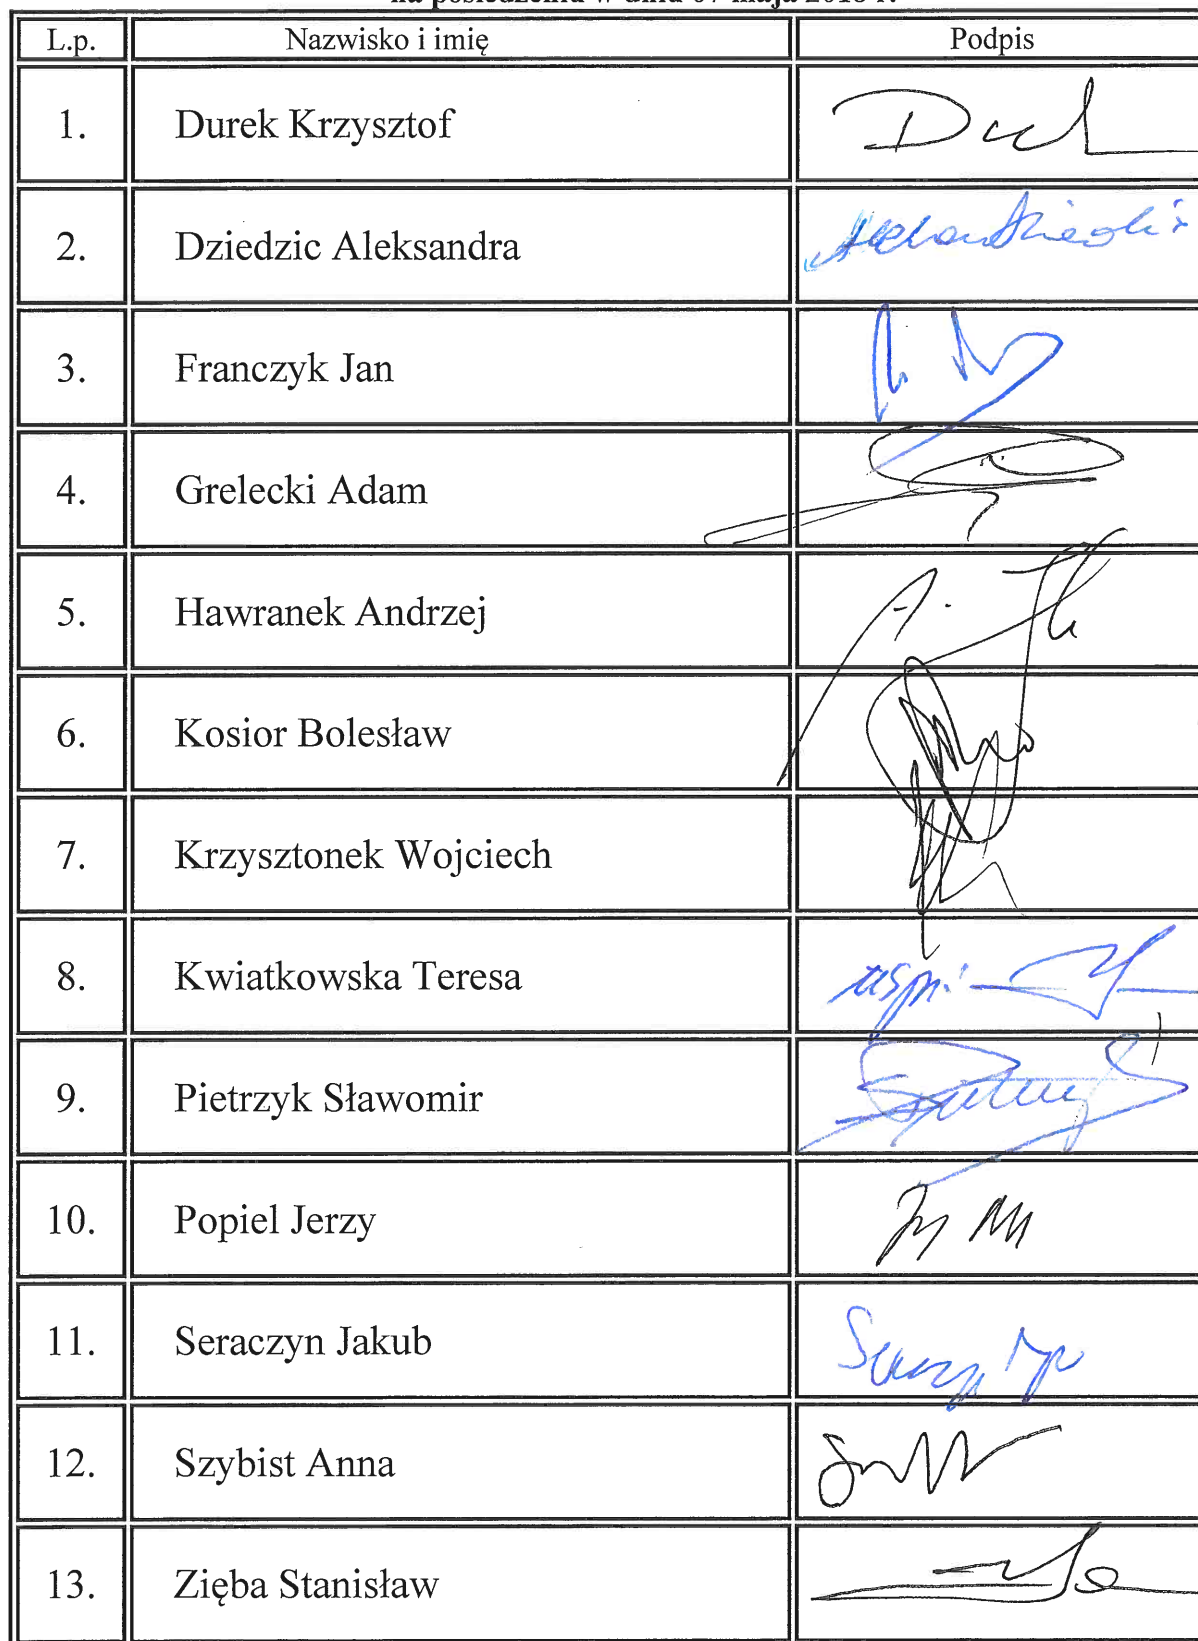 na posiedzeniu w dniu 07 maja 2018 r.
L.p. Nazwisko i imię Podpis
1. Durek Krzysztof
2. Dziedzic Aleksandra
3. Franczyk Jan
4. Grelecki Adam
5. Hawranek Andrzej
6. Kosior Bolesław
7. Krzysztonek Wojciech
8. Kwiatkowska Teresa
9. Pietrzyk Sławomir
10. Popiel Jerzy
11. Seraczyn Jakub
12. Szybist Anna
13. Zięba Stanisław